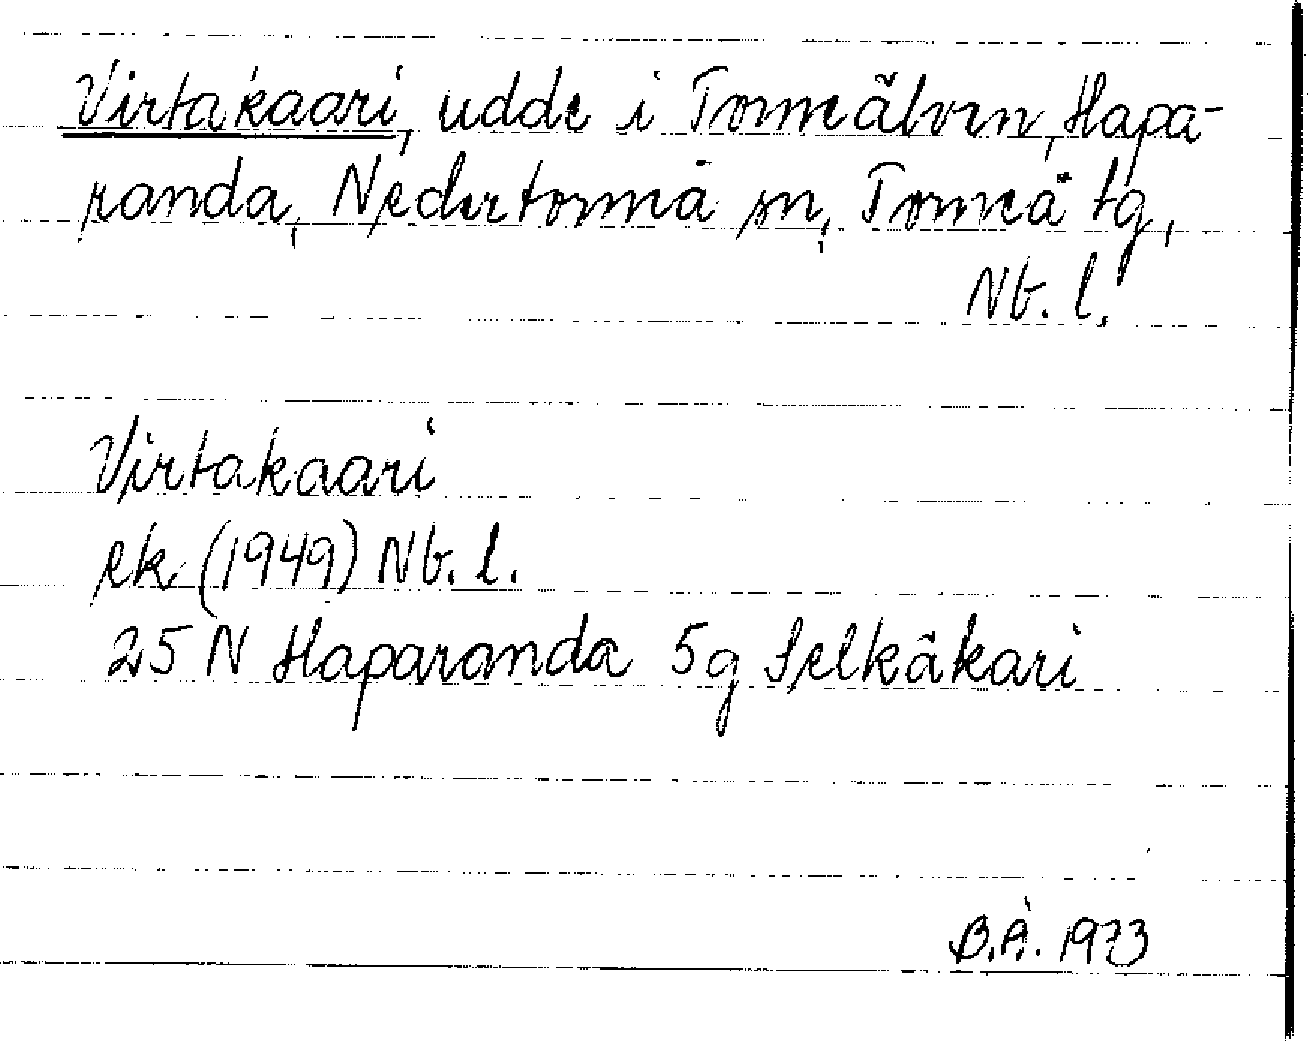 Virtakaari, udde i Torneälven, Hapa-
randa, Nedertorneå sn, Torneå tg,
Nb. l.
Virtakaari
ek (1949) Nb. l.
25 N Haparanda 5g Selkäkari
B.Å. 1973